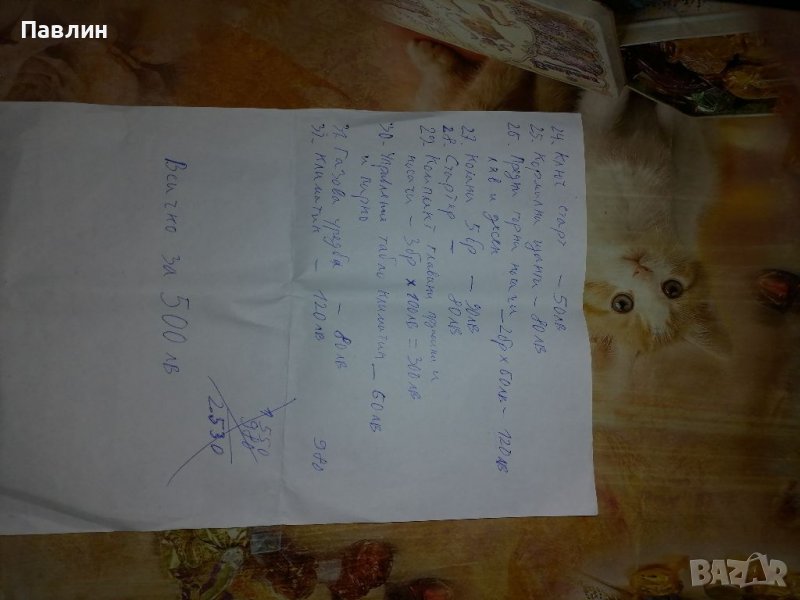 Павлин
24. Ключ старт – 50лв
25. Кормилни щанги – 80лв
26. Предни горни носачи – 2бр х 60лв – 120лв
ляв и десен
27. Колани 5бр – 90лв
28. Стартер – 80лв
29. Комплект главини пружини и
носачи – 3бр х 100лв = 300лв
30. Управление табло климатик – 60лв
и парно
31. Газова уредба – 80лв
32. климатик – 120лв
980
Всичко за 500 лв
1550
980
2.530
BAZAR